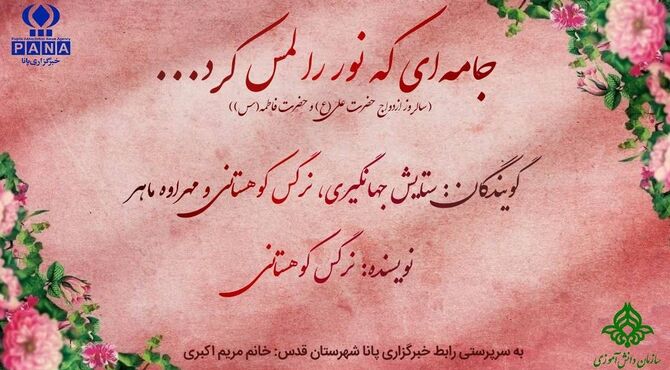 PANA
خبرگزاری پانا
جامه‌ای که نور را لمس کرد...
(سالروز ازدواج حضرت علی(ع) و حضرت فاطمه(س))
گویندگان: ستایش جهانگیری، نرگس کوهستانی و مهراوه ماهر
نویسنده: نرگس کوهستانی
به سرپرستی رابط خبرگزاری پانا شهرستان قدس: خانم مریم اکبری
سازمان دانش‌آموزی